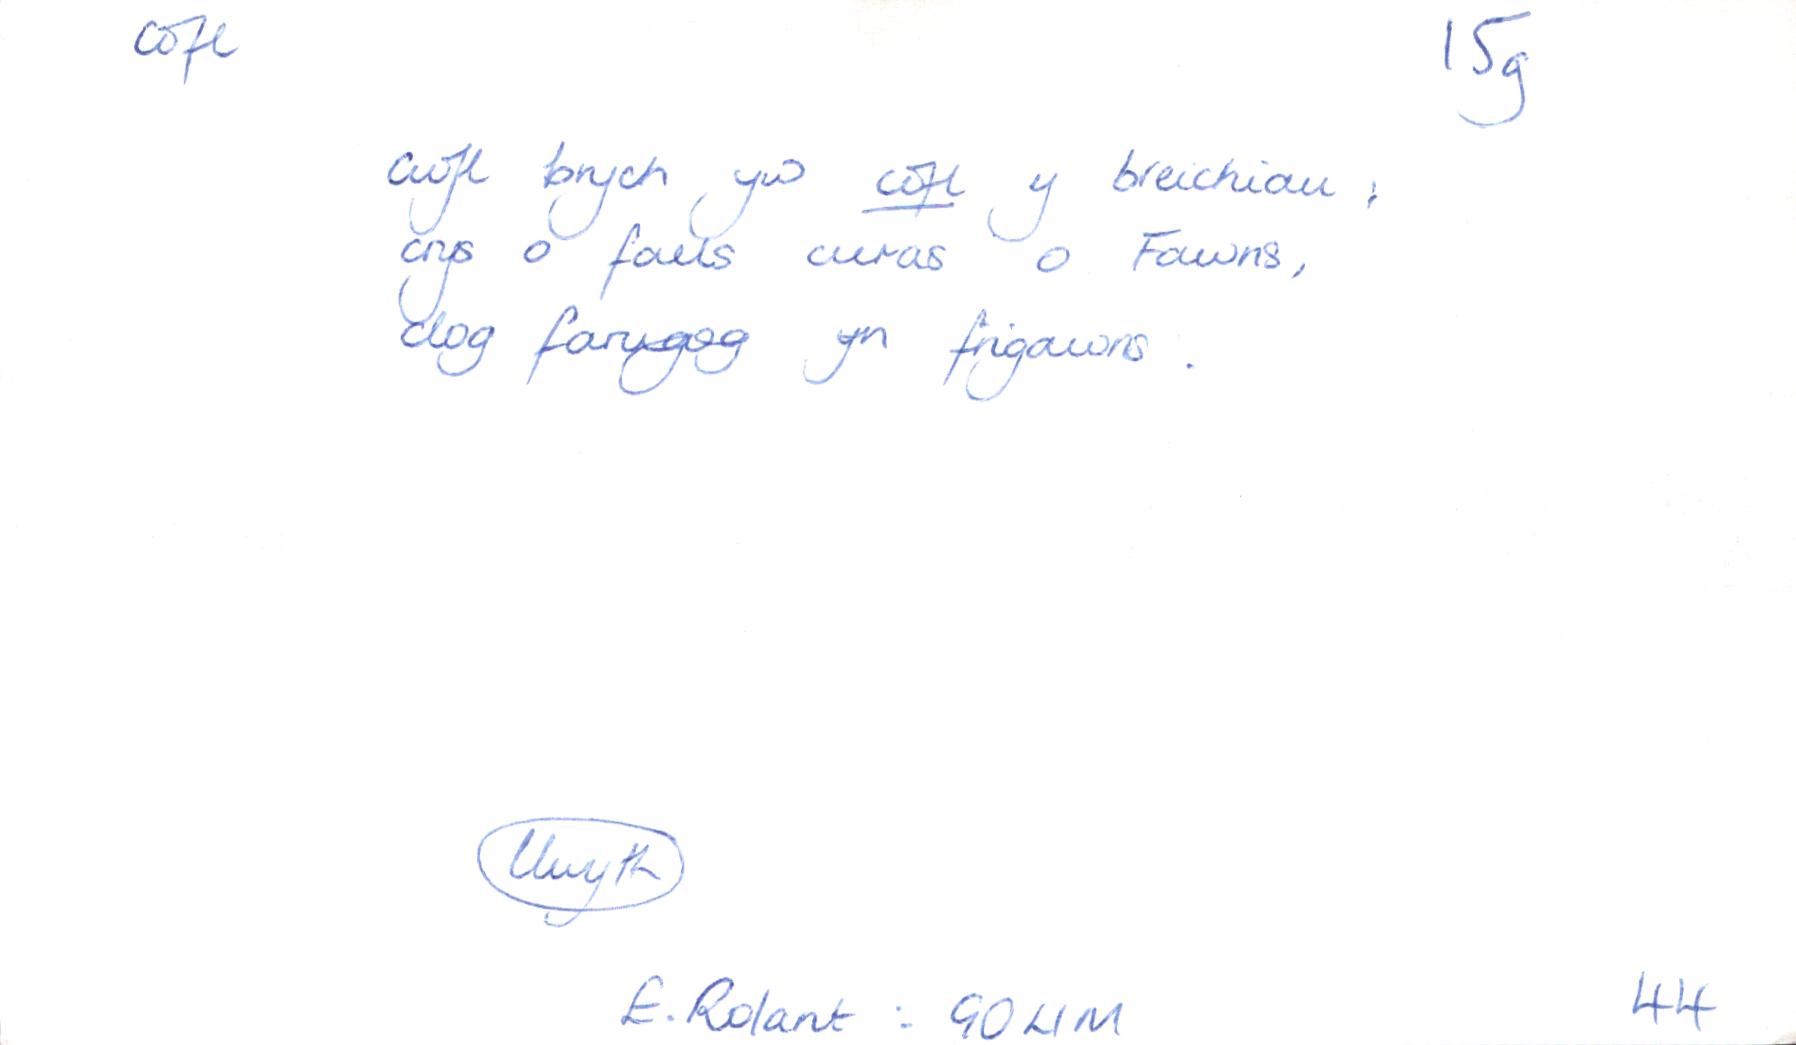 côfl 15g
cwfl brych yw côfl y breichiau,
crys o faels curas o Fawns,
clog farugog yn frigawns.
llwyth
E. Rolant : GOLlM 44